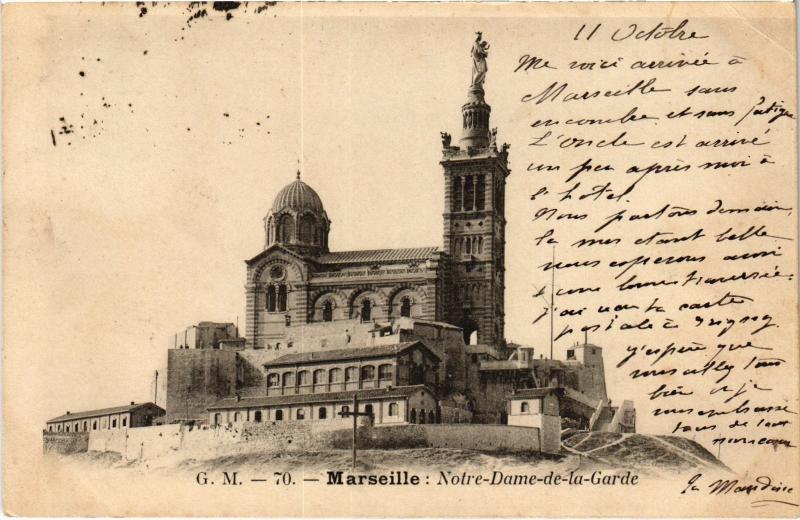 11 Octobre
Me voici arrivée à
Marseille sans
encombre et sans fatigue
L'oncle est arrivé
un peu après moi à
l'hotel.
Nous partons demain,
la mer etant belle
nous esperons avoir
une bonne traversée.
j'ai reçu ta carte
postale à Irigny.
j'espère que
vous allez tous
bien et je
vous embrasse
tous de tout
mon cœur
G. M. — 70. — Marseille : Notre-Dame-de-la-Garde